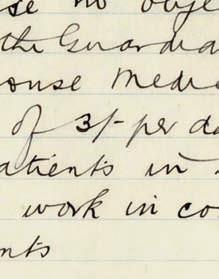 se no obje
the Guardia
ouse Medi
of 3/- per da
atients in
work in co
nts